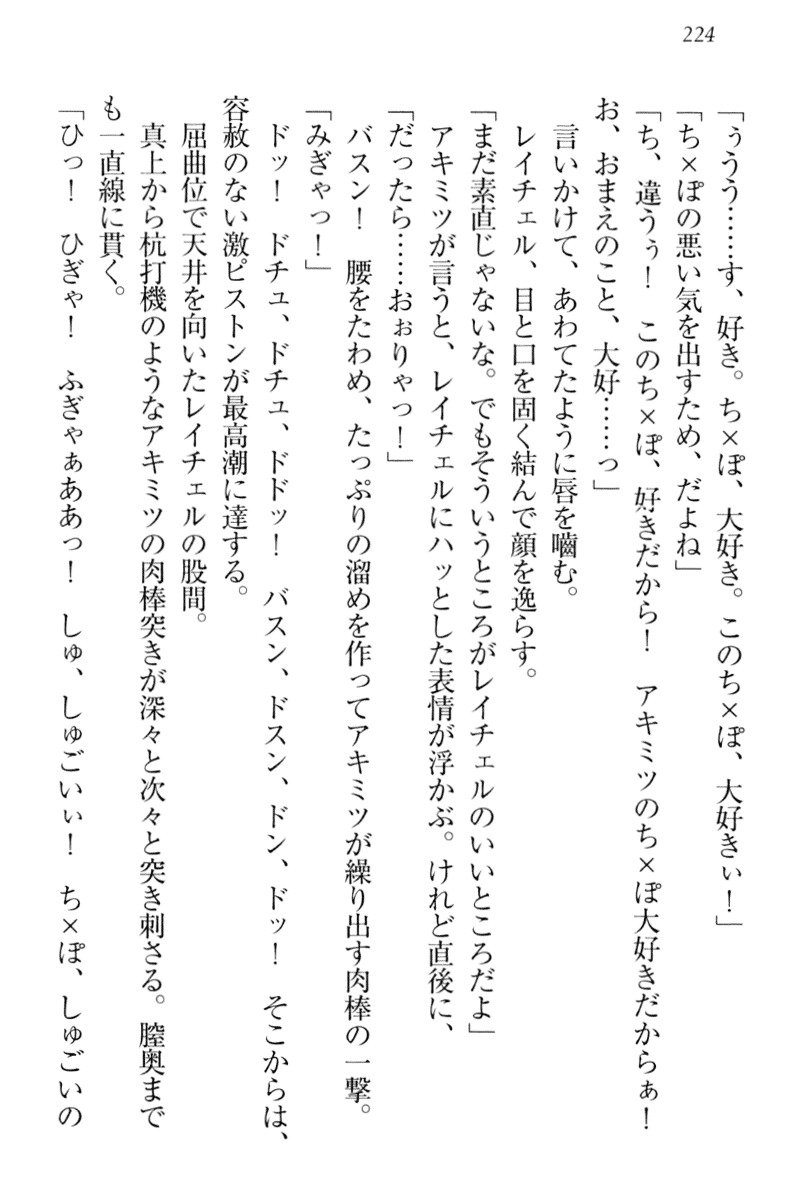 224
「ぅうう……す、好き。ち×ぽ、大好き。このち×ぽ、大好きぃ！」
「ち×ぽの悪い気を出すため、だよね」
「ち、違うぅ！　このち×ぽ、好きだから！　アキミツのち×ぽ大好きだからぁ！
お、おまえのこと、大好……っ」
言いかけて、あわてたように唇を嚙む。
レイチェル、目と口を固く結んで顔を逸らす。
「まだ素直じゃないな。でもそういうところがレイチェルのいいところだよ」
アキミツが言うと、レイチェルにハッとした表情が浮かぶ。けれど直後に、
「だったら……おぉりゃっ！」
バスン！　腰をたわめ、たっぷりの溜めを作ってアキミツが繰り出す肉棒の一撃。
「みぎゃっ！」
ドッ！　ドチュ、ドチュ、ドドッ！　バスン、ドスン、ドン、ドッ！　そこからは、
容赦のない激ピストンが最高潮に達する。
屈曲位で天井を向いたレイチェルの股間。
真上から杭打機のようなアキミツの肉棒突きが深々と次々と突き刺さる。膣奥まで
も一直線に貫く。
「ひっ！　ひぎゃ！　ふぎゃぁああっ！　しゅ、しゅごいぃ！　ち×ぽ、しゅごいの